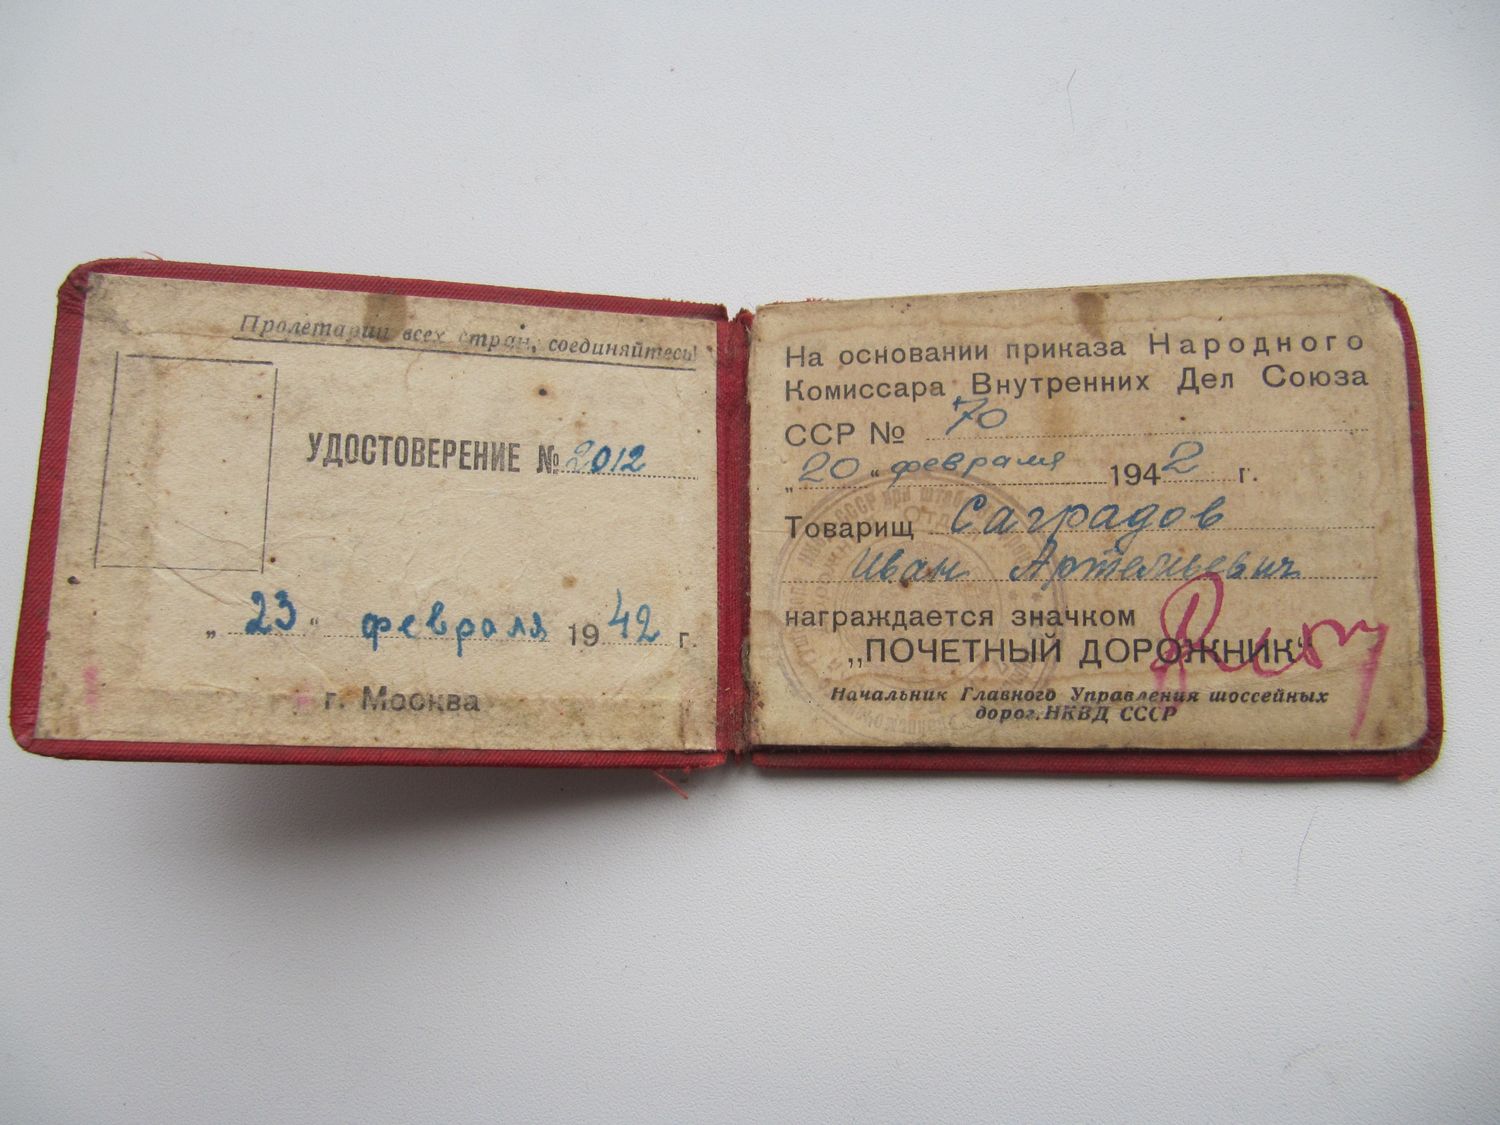 Пролетарии всех стран, соединяйтесь!
УДОСТОВЕРЕНИЕ № 2012
„23“ февраля 1942 г.
г. Москва
На основании приказа Народного
Комиссара Внутренних Дел Союза
ССР № 70
„20“ февраля 1942 г.
Товарищ Саградов
Иван Артемьевич
награждается значком
„ПОЧЕТНЫЙ ДОРОЖНИК“
Начальник Главного Управления шоссейных
дорог НКВД СССР